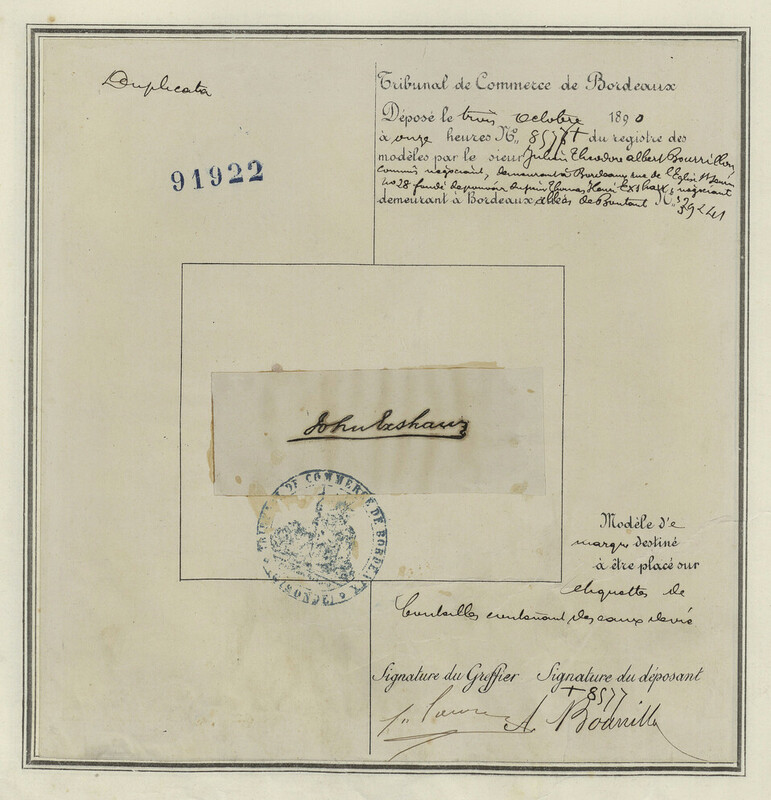 Duplicata
91922
Tribunal de Commerce de Bordeaux
Déposé le trois octobre 1890
à onze heures No. 8577 du registre des
modèles par le sieur Julien Théodore Albert Bourrillon
commis négociant, demeurant à Bordeaux rue de l'Eglise St Seurin
no 28 fondé de pouvoir du sieur Thomas Henri Exshaw, négociant
demeurant à Bordeaux, allées de Boutaut No. 39241
John Exshaw
TRIBUNAL DE COMMERCE DE BORDEAUX
(GIRONDE)
Modèle de
marque destiné
à être placé sur
étiquettes de
bouteilles contenant des eaux de vie
Signature du Greffier Signature du déposant
+ 8577